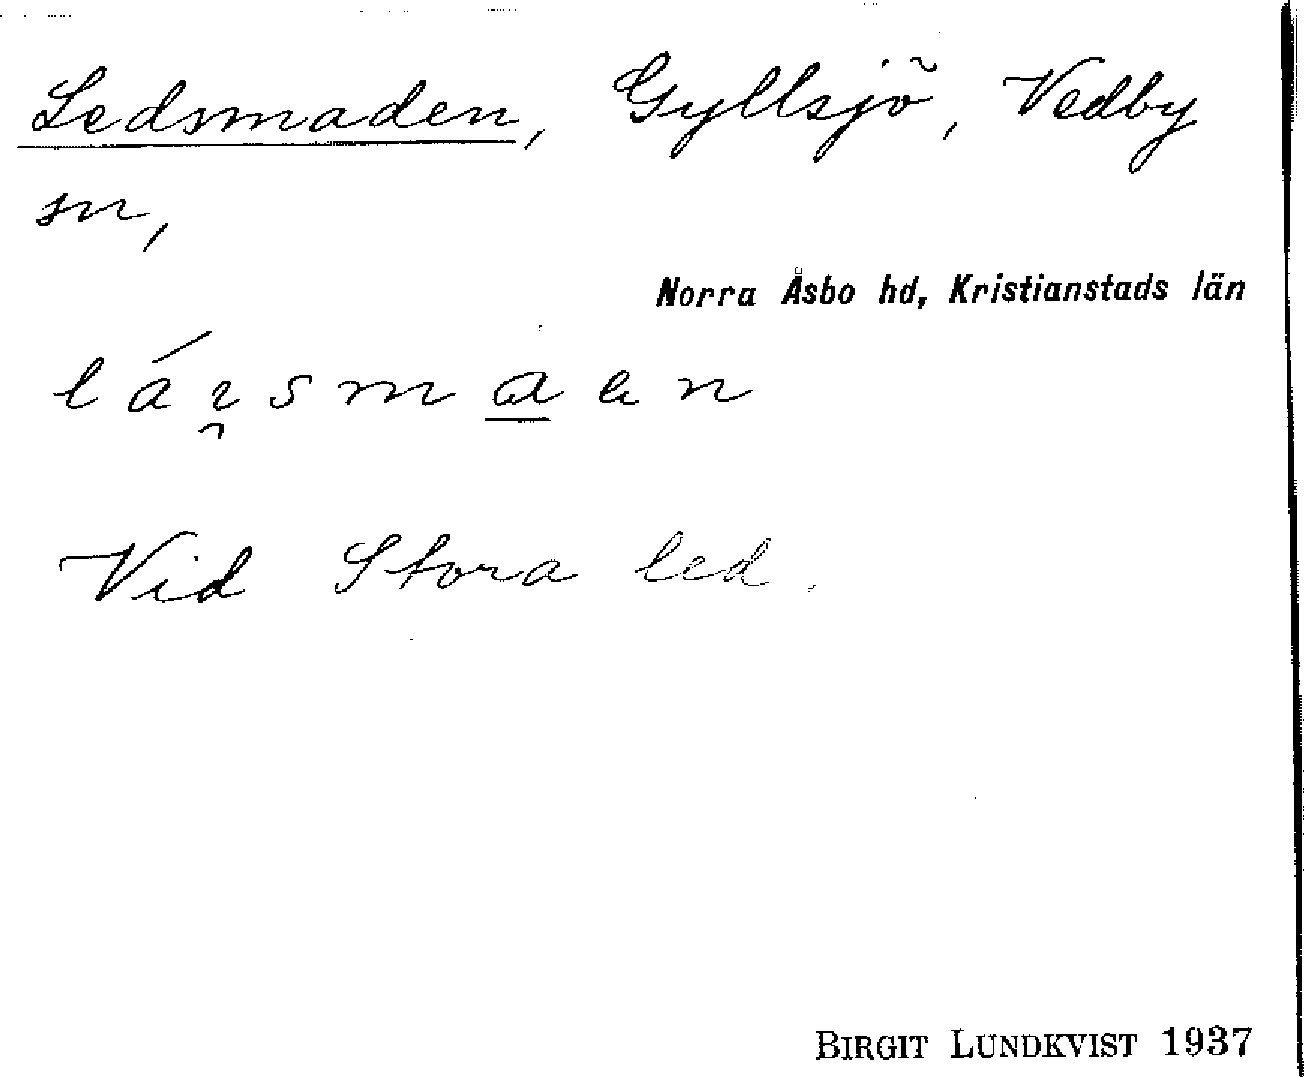 Ledsmaden, Gyllsjö, Vedby
sn,
Norra Åsbo hd, Kristianstads län
Vid Stora led.
BIRGIT LUNDKVIST 1937